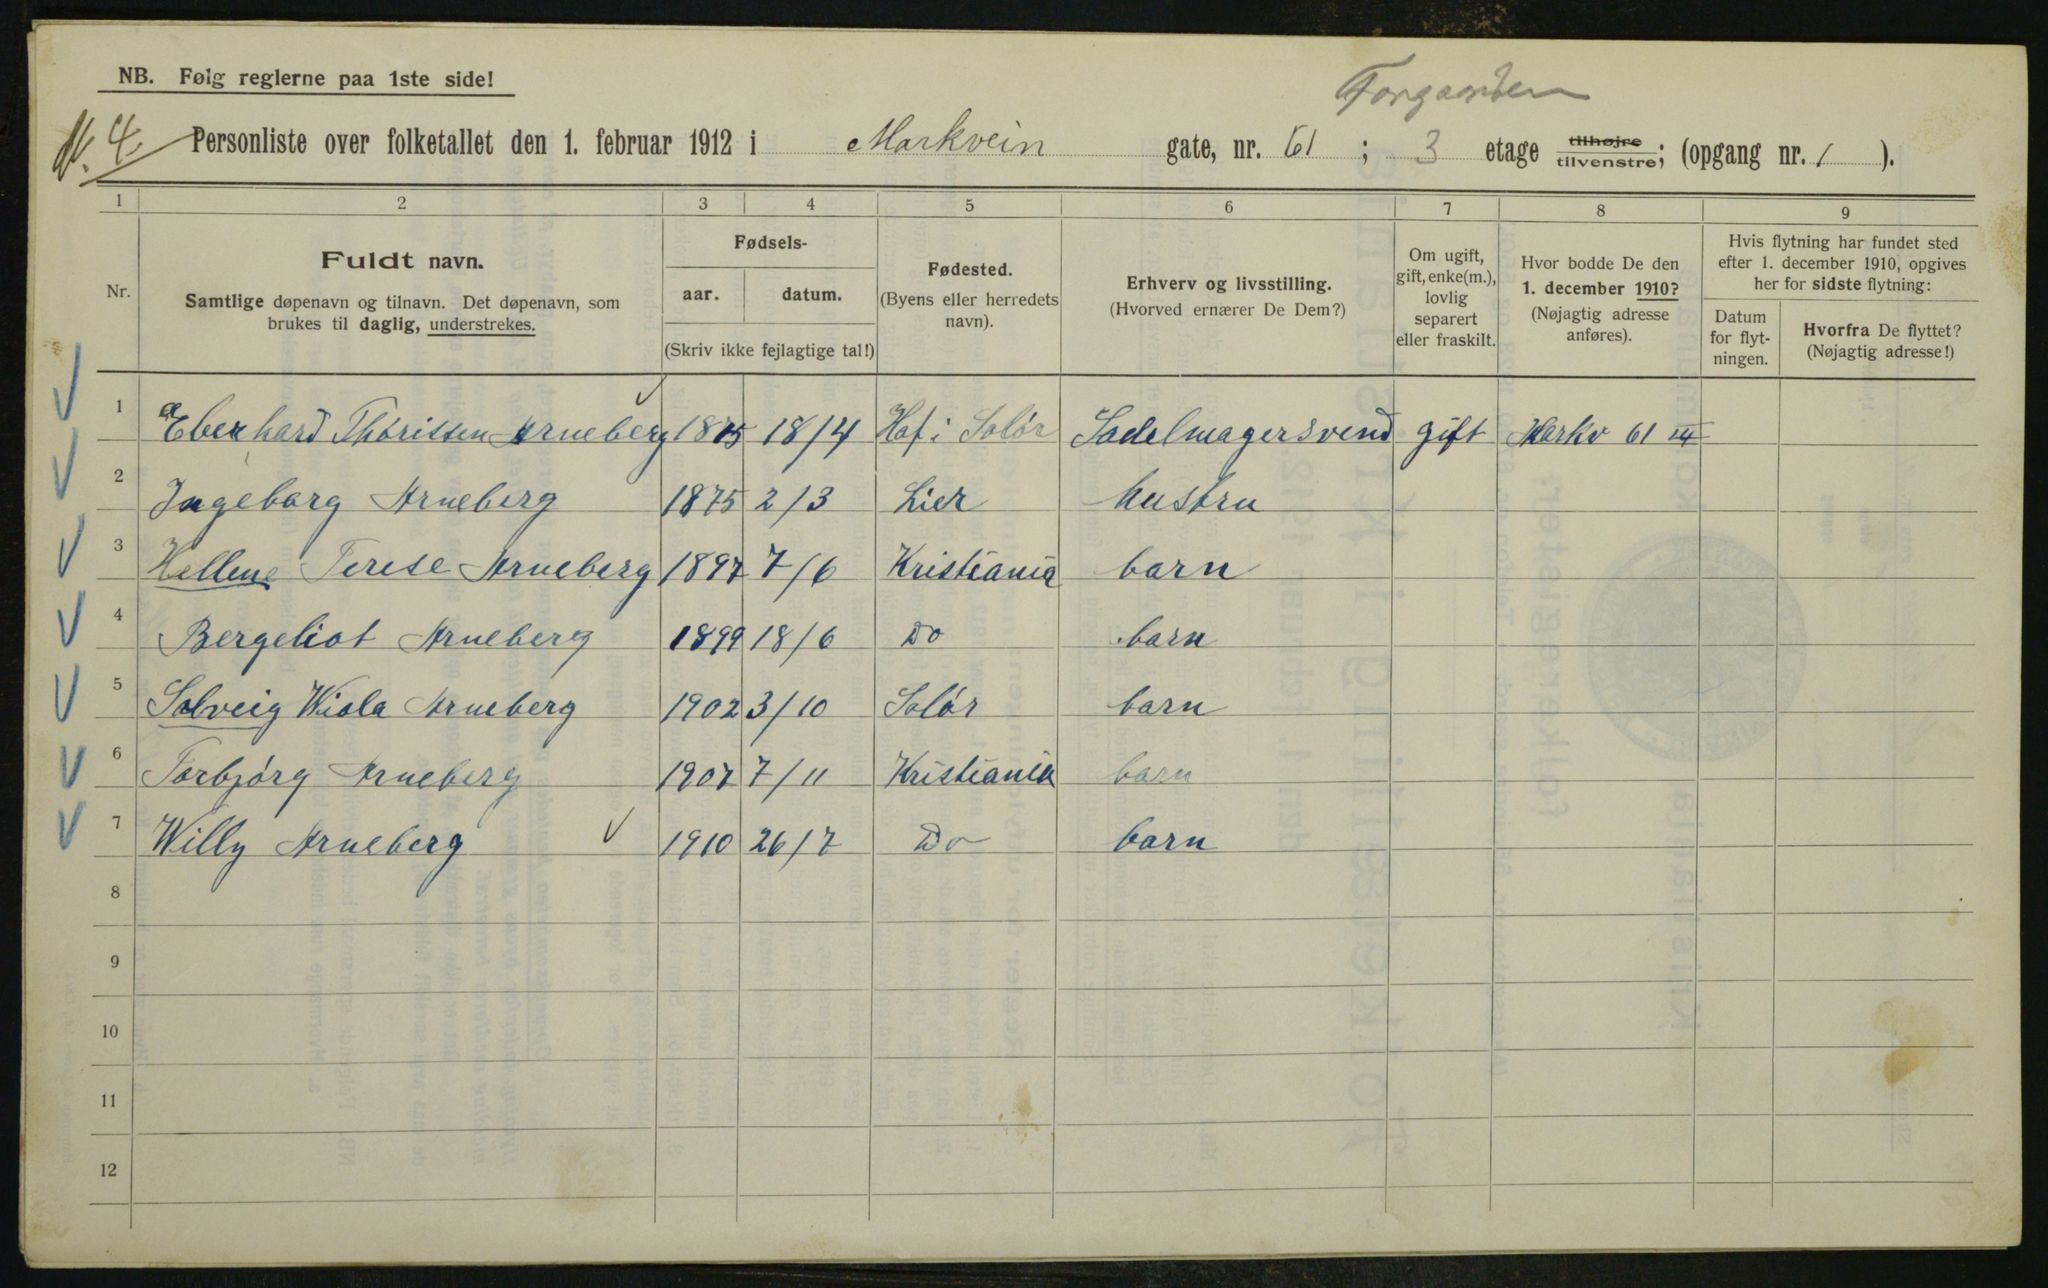 NB. Følg reglerne paa 1ste side!
Forgaarden
N. 4. Personliste over folketallet den 1. februar 1912 i Markvein gate, nr. 61 ; 3 etage tilhøjre tilvenstre; (opgang nr. 1 ).
1 2 3 4 5 6 7 8 9
Nr.
Fuldt navn.
Samtlige døpenavn og tilnavn. Det døpenavn, som
brukes til daglig, understrekes.
Fødsels-
aar. datum.
(Skriv ikke fejlagtige tal!)
Fødested.
(Byens eller herredets
navn).
Erhverv og livsstilling.
(Hvorved ernærer De Dem?)
Om ugift,
gift, enke(m.),
lovlig
separert
eller fraskilt.
Hvor bodde De den
1. december 1910?
(Nøjagtig adresse
anføres).
Hvis flytning har fundet sted
efter 1. december 1910, opgives
her for sidste flytning:
Datum
for flyt-
ningen.
Hvorfra De flyttet?
(Nøjagtig adresse!)
1 Eberhard Thorissen Arneberg 1875 18/4 Hof i Solør Sadelmagersvend gift Markv 61 III
2 Ingeborg Arneberg 1875 2/3 Lier hustru
3 Hellene Terese Arneberg 1897 7/6 Kristiania barn
4 Bergeliot Arneberg 1899 18/6 Do barn
5 Solveig Wiola Arneberg 1902 3/10 Solør barn
6 Torbjørg Arneberg 1907 7/11 Kristiania barn
7 Willy Arneberg 1910 26/7 Do barn
8
9
10
11
12